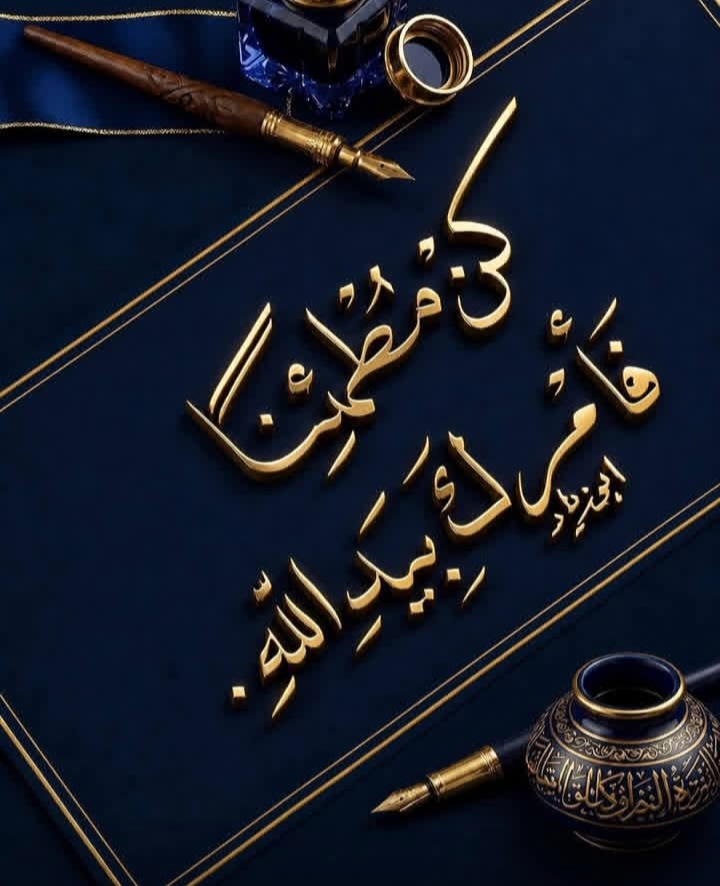 كُنْ مُطْمَئِنًّا
فَأَمْرُكَ بِيَدِ اللّٰهِ.